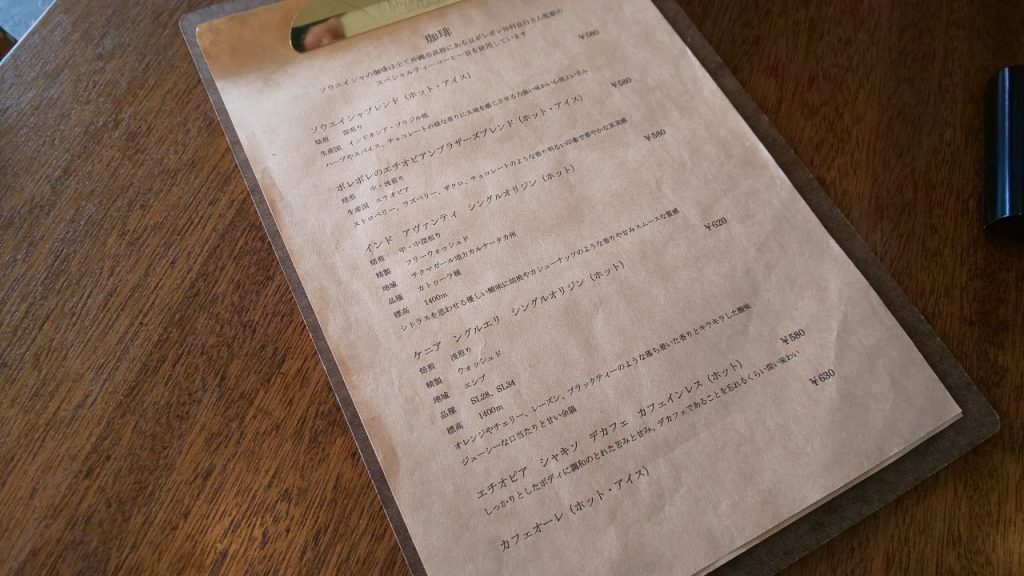 珈琲
ソウエイシャの珈琲は全て沖縄市浜原にある豆ポレポレ仲村良行さん監修の
スペシャルティーコーヒー豆を使用しています
ソウエイシャブレンド（ホット・アイス） ￥580
焙煎 深煎り
生産国 インドネシア・ブラジル他
ハーブやスパイス、チョコレートの様な香りに大地を感じさせる力強い味わい心地よい苦み
ポレポレのエチオピアンブラザーズブレンド（ホット・アイス） ￥580
焙煎 中・浅煎り
生産国 エチオピア
ストロベリー、ラズベリー、ザクロ、チョコレートのような香り明るい印象で華やかな
インド アヴァンティ シングルオリジン（ホット） ￥580
焙煎 中・中深煎り
精製 フリーウォッシュド
地域 チクマガール地方カルナータカ州
品種 カトゥーラ種
標高 1400m
シトラスを思わせる優しい酸味に胡桃やカシューナッツのような香りや甘みスムースな質感
ケニア ングルエリ シングルオリジン（ホット） ￥620
焙煎 浅煎り
精製 ウォッシュド
地域 エンブ
品種 SL28、SL34
標高 1400m
オレンジやチェリー、レーズン、ブラックティーのような落ち着いた香りとキラキラした酸味
ジューシーな口当たりと甘い余韻
エチオピア シャキソ デカフェ カフェインレス（ホット） ￥580
しっかりとしたボディに調和のとれた苦みと甘み。デカフェであることを忘れるくらい深い味わい
カフェオーレ（ホット・アイス） ￥630